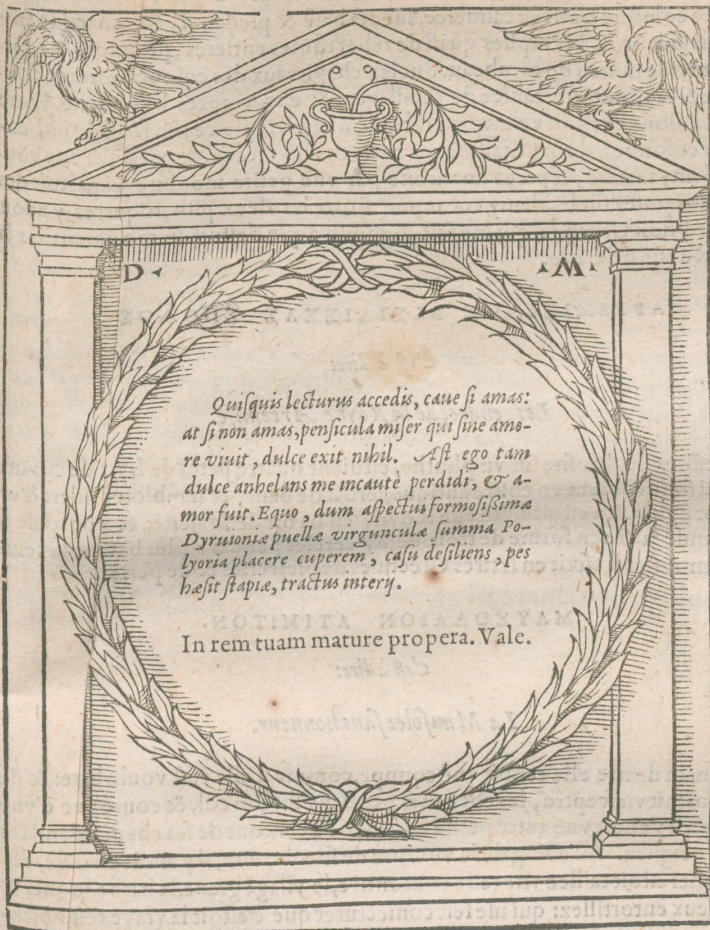 D ◂ ▴ M ▴
Quiſquis lecturus accedis, caue ſi amas:
at ſi non amas, penſicula miſer qui ſine amo-
re viuit, dulce exit nihil. Aſt ego tam
dulce anhelans me incautè perdidi, & a-
mor fuit. Equo, dum aſpectui formoſiſſimæ
Dyruioniæ puellæ virgunculæ ſumma Po-
lyoria placere cuperem, caſu deſiliens, pes
hæſit ſtapiæ, tractus interij.
In rem tuam mature propera. Vale.